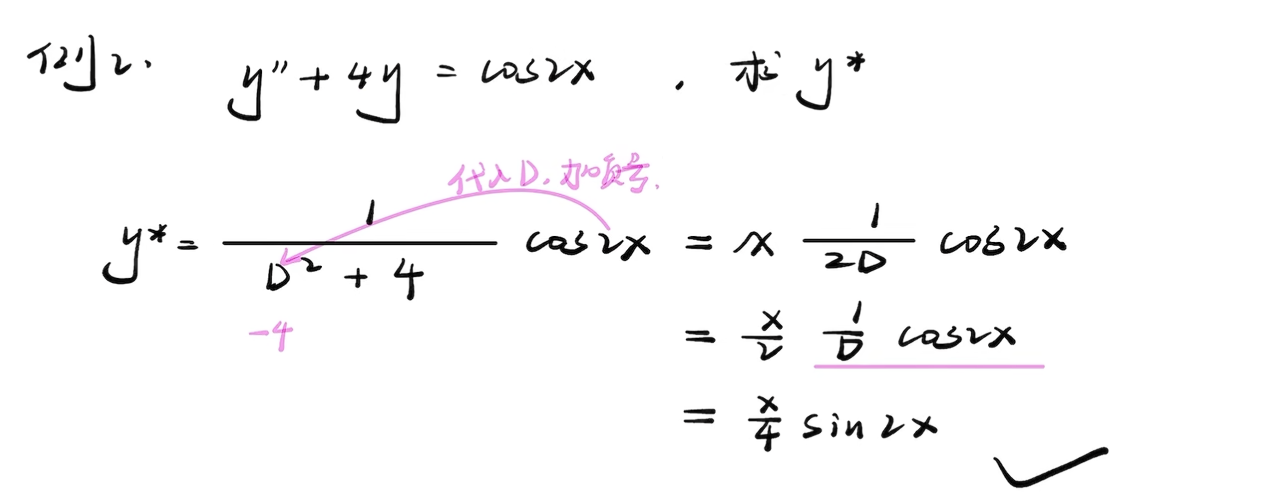 例2. y" + 4y = cos2x , 求 y*
代入D. 加负号.
y* = 1/(D² + 4) cos2x = x 1/(2D) cos2x
-4
= x/2 1/D cos2x
= x/4 sin2x